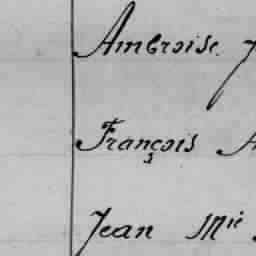 Ambroise
François
Jean Mie